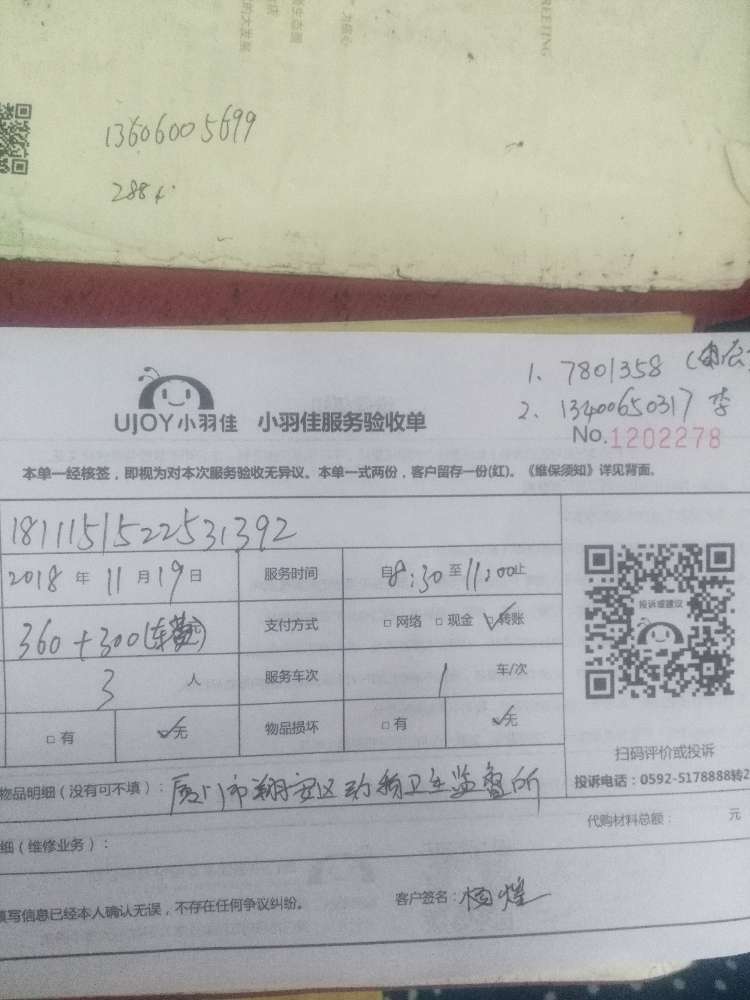 REETING
为核心
13606005699
288
1. 7801358
2. 13400650317 李
UJOY小羽佳 小羽佳服务验收单
No.1202278
本单一经核签，即视为对本次服务验收无异议。本单一式两份，客户留存一份(红)。《维保须知》详见背面。
1811151522531392
2018年11月19日 服务时间 自8:30至11:00止
360+300(车费) 支付方式 □网络 □现金 ☑转账
3人 服务车次 1车/次
□有 ☑无 物品损坏 □有 ☑无
投诉或建议
扫码评价或投诉
投诉电话：0592-5178888转2
物品明细（没有可不填）：厦门市翔安区动物卫生监督所
代购材料总额： 元
细（维修业务）：
填写信息已经本人确认无误，不存在任何争议纠纷。 客户签名：